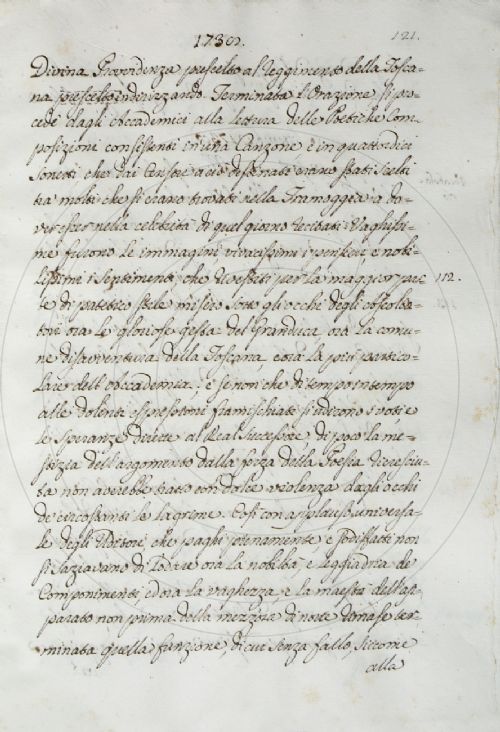 1730.
121.
Divina Provvidenza prescelto al reggimento della Tosca=
na prescelto indirizzando. Terminata l'Orazione si pro=
cedé dagli Accademici alla lettura delle Poetiche Com=
posizioni consistenti in una Canzone e in quattordici
Sonetti che dai Censori a ciò destinati erano stati scelti
tra' molti che si erano trovati nella Tramoggia a do=
ver esser nella celebrità di quel giorno recitati. Vaghissi=
me furono le immagini, vivacissimi i pensieri e nobi=
lissimi i sentimenti, che rivestiti per la maggior par=
112.
te di patetico stile misero sotto gli occhi degli ascolta=
tori ora le gloriose gesta del Granduca, ora la comu=
ne disavventura della Toscana, e ora la più partico=
lare dell'Accademia, e se non che di tempo in tempo
alle dolenti espressioni frammischiati si udirono i voti e
le speranze dirette al Real Successore, di poco la me=
stizia dell'argomento dalla forza della Poesia accresciu=
ta non averebbe tratto con dolce violenza dagli occhi
de' circostanti le lagrime. Così con applauso universa=
le degli Uditori, che paghi pienamente, e sodisfatti non
si saziavano di lodare ora la nobiltà e leggiadria de'
Componimenti, ed ora la vaghezza, e la maestà dell'ap=
parato non prima della mezzora di notte rimase ter=
minata quella funzione, di cui senza fallo, siccome
alla